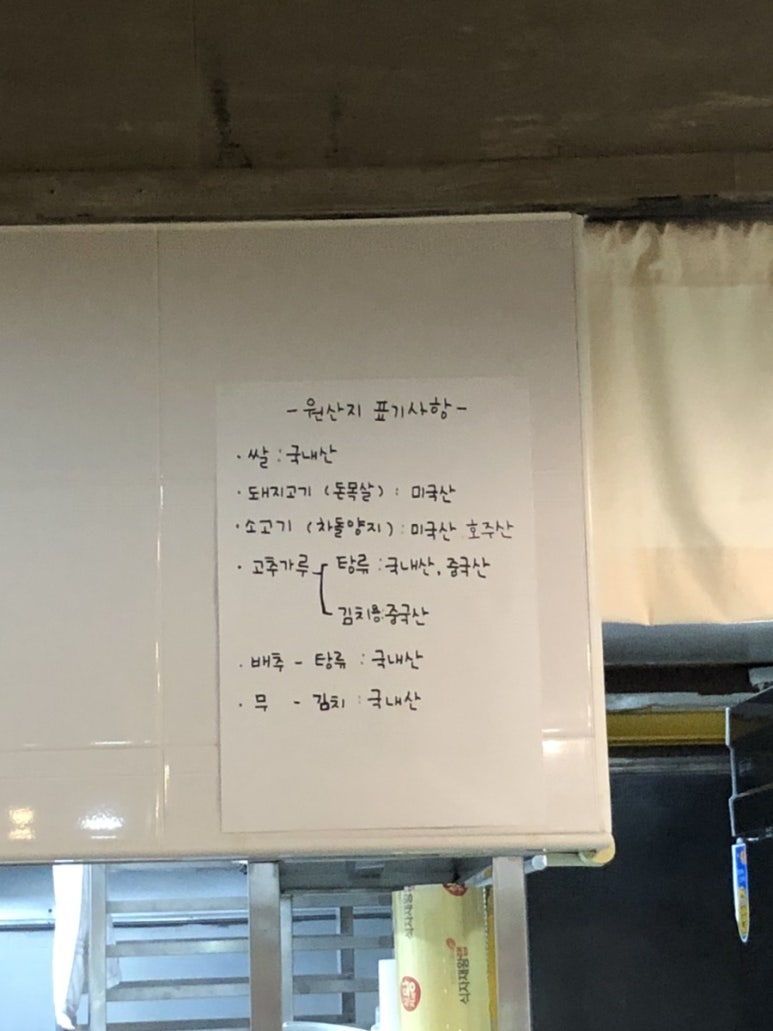 - 원산지 표기사항 -
· 쌀 : 국내산
· 돼지고기 (돈목살) : 미국산
· 소고기 (차돌양지) : 미국산 호주산
· 고추가루 탕류 : 국내산, 중국산
김치용:중국산
· 배추 - 탕류 : 국내산
· 무 - 김치 : 국내산
식자재왕랩